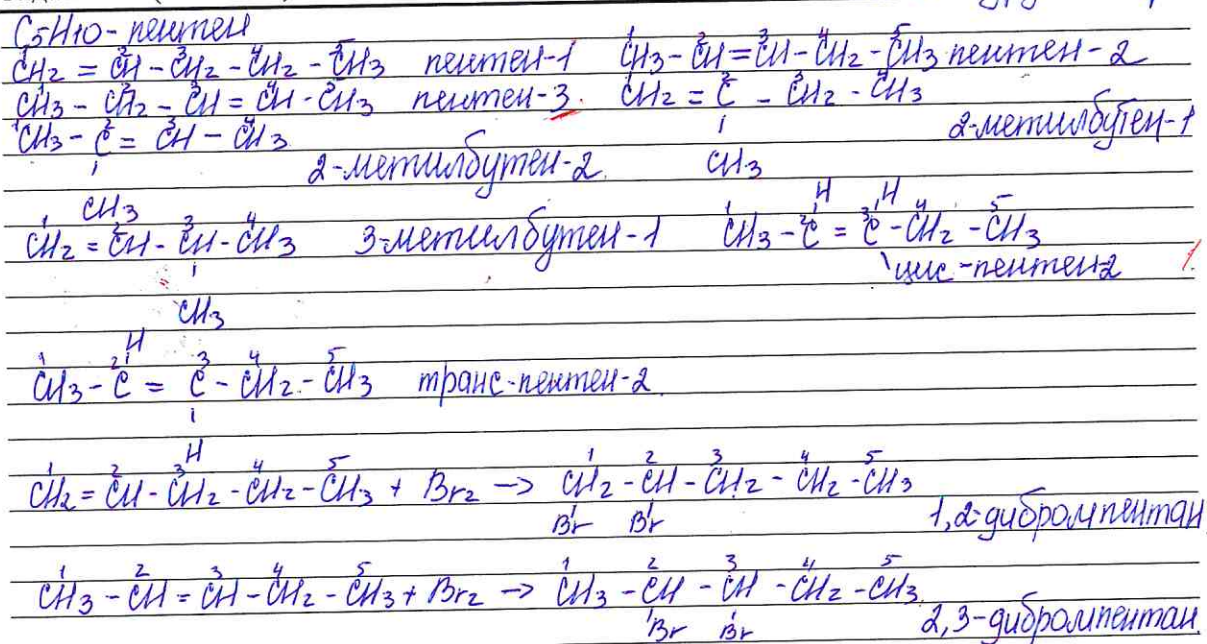 C5H10 - пентен
¹CH2 = ²CH - ³CH2 - ⁴CH2 - ⁵CH3 пентен-1 ¹CH3 - ²CH = ³CH - ⁴CH2 - ⁵CH3 пентен-2
¹CH3 - ²CH2 - ³CH = ⁴CH - ⁵CH3 пентен-3. ¹CH2 = ²C - ³CH2 - ⁴CH3
¹CH3 - ²C = ³CH - ⁴CH3 2-метилбутен-1
2-метилбутен-2. CH3
CH3 H H
¹CH2 = ²CH - ³CH - ⁴CH3 3-метилбутен-1 ¹CH3 - ²C = ³C - ⁴CH2 - ⁵CH3
цис-пентен-2 1
CH3
H
¹CH3 - ²C = ³C - ⁴CH2 - ⁵CH3 транс-пентен-2
H
¹CH2 = ²CH - ³CH2 - ⁴CH2 - ⁵CH3 + Br2 → ¹CH2 - ²CH - ³CH2 - ⁴CH2 - ⁵CH3
Br Br 1,2-дибромпентан
¹CH3 - ²CH = ³CH - ⁴CH2 - ⁵CH3 + Br2 → ¹CH3 - ²CH - ³CH - ⁴CH2 - ⁵CH3
Br Br 2,3-дибромпентан